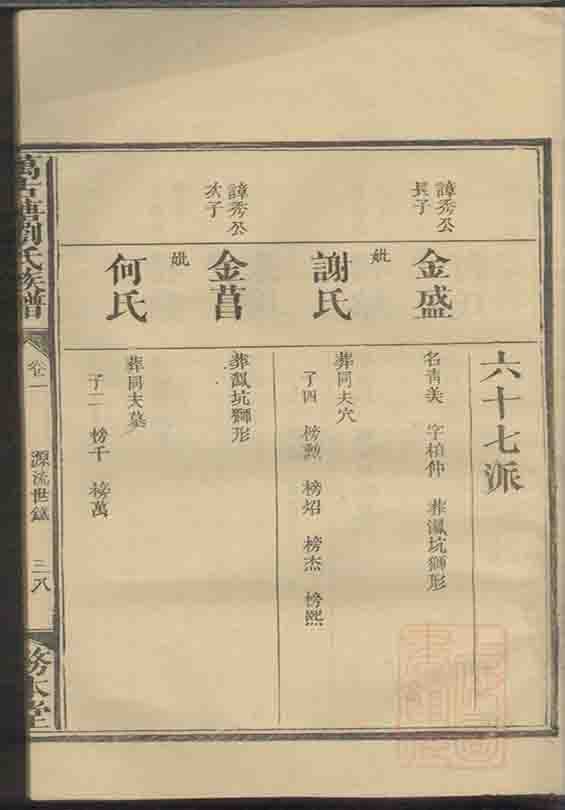 六十七派
諱秀公
長子
金盛
名青美 字柏仲 葬瓢坑獅形
妣
謝氏
葬同夫穴
子四 榜勲 榜炤 榜杰 榜熙
諱秀公
次子
金菖
葬瓢坑獅形
妣
何氏
葬同夫墓
子二 榜千 榜萬
萬古塘劉氏族譜
卷一
源流世錄
三八
務本堂